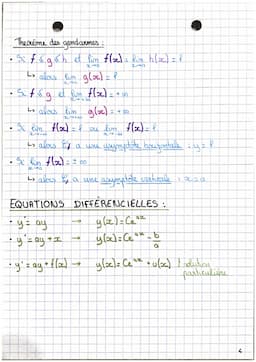 Théorème des gendarmes :
• Si f ≤ g ≤ h et lim f(x) = lim h(x) = l
↳ alors lim g(x) = l
• Si f ≤ g et lim f(x) = +∞
↳ alors lim g(x) = +∞
• Si lim f(x) = l ou lim f(x) = l
↳ alors Cf a une asymptote horizontale : y = l
• Si lim f(x) = ±∞
↳ alors Cf a une asymptote verticale : x = a
EQUATIONS DIFFÉRENCIELLES :
• y' = ay → y(x) = Ce^ax
• y' = ay + → y(x) = Ce^ax - b/a
• y' = ay + f(x) → y(x) = Ce^ax + u(x) solution
particulière